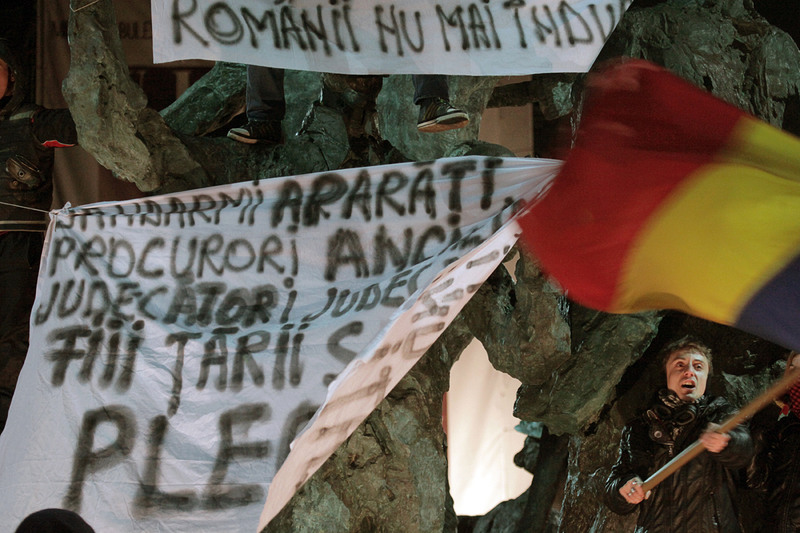 ROMÂNII NU MAI ÎNDU
JANDARMI APĂRAȚI
PROCURORI ANCH
JUDECĂTORI JUDEC
FIII ȚĂRII S
PLE